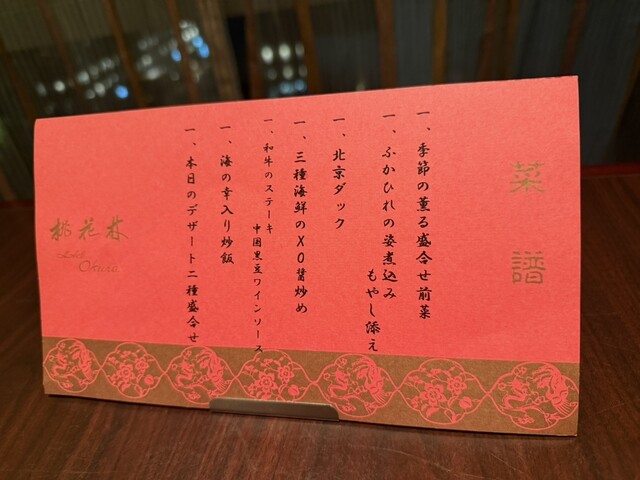 菜譜
一、季節の薫る盛合せ前菜
一、ふかひれの姿煮込み
もやし添え
一、北京ダック
一、三種海鮮のXO醤炒め
一、和牛のステーキ
中国黒豆ワインソース
一、海の幸入り炒飯
一、本日のデザート二種盛合せ
桃花林
Hotel
Okura